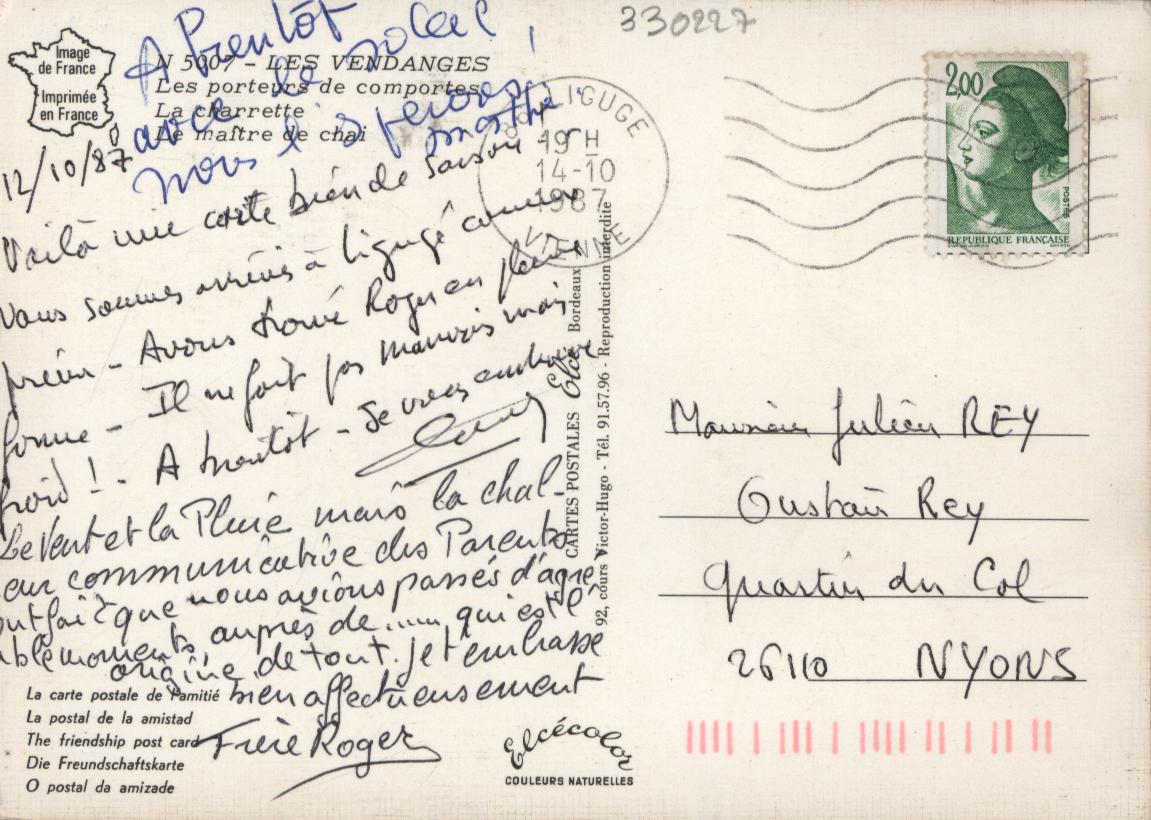 330227
Image
de France
Imprimée
en France
A Bientôt
avec le soleil
nous l'espérons !
N 5007 - LES VENDANGES
Les porteurs de comportes
La charrette
Le maître de chai
12/10/87
Voilà une carte bien de saison -
Nous sommes arrivés à Ligugé comme
prévu - Avons trouvé Roger en pleine
forme - Il ne fait pas mauvais mais
froid ! - A bientôt - Je vous embrasse
Le Vent et la Pluie mais la chal-
eur communicative des Parents
ont fait que nous avions passés d'agré-
ables moments auprès de ...... qui est l'
origine de tout. Je t'embrasse
bien affectueusement
Frère Roger
La carte postale de l'amitié
La postal de la amistad
The friendship post card
Die Freundschaftskarte
O postal da amizade
LIGUGE
19 H
14-10
1987
VIENNE
CARTES POSTALES Elcé Bordeaux
92, cours Victor-Hugo - Tél. 91.57.96 - Reproduction interdite
Elcécolor
COULEURS NATURELLES
2,00
POSTES
REPUBLIQUE FRANÇAISE
Monsieur Julien REY
Gustave Rey
Quartier du Col
26110 NYONS